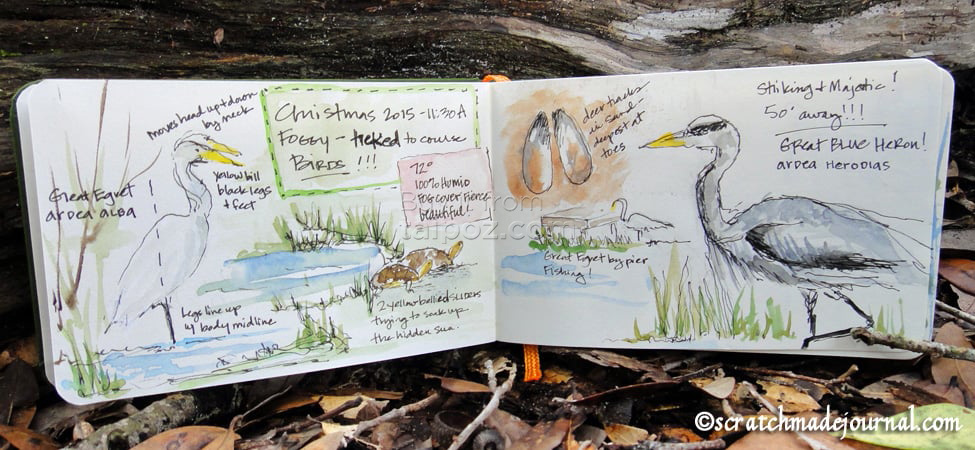 moves head up + down
by neck
Great Egret
ardea alba
yellow bill
black legs
+ feet
Legs line up
w/ body midline
Christmas 2015 - 11:30A
Foggy - trekked to course
Birds !!!
72°
100% Humid
Fog cover Fierce
beautiful!
2 yellow bellied sliders
trying to soak up
the hidden sun.
deer tracks
in sand
deepest at
toes
Great Egret by pier
Fishing!
Stiking + Majestic!
50' away!!!
Great Blue Heron!
ardea Herodias
taipoz.com
©scratchmadejournal.com